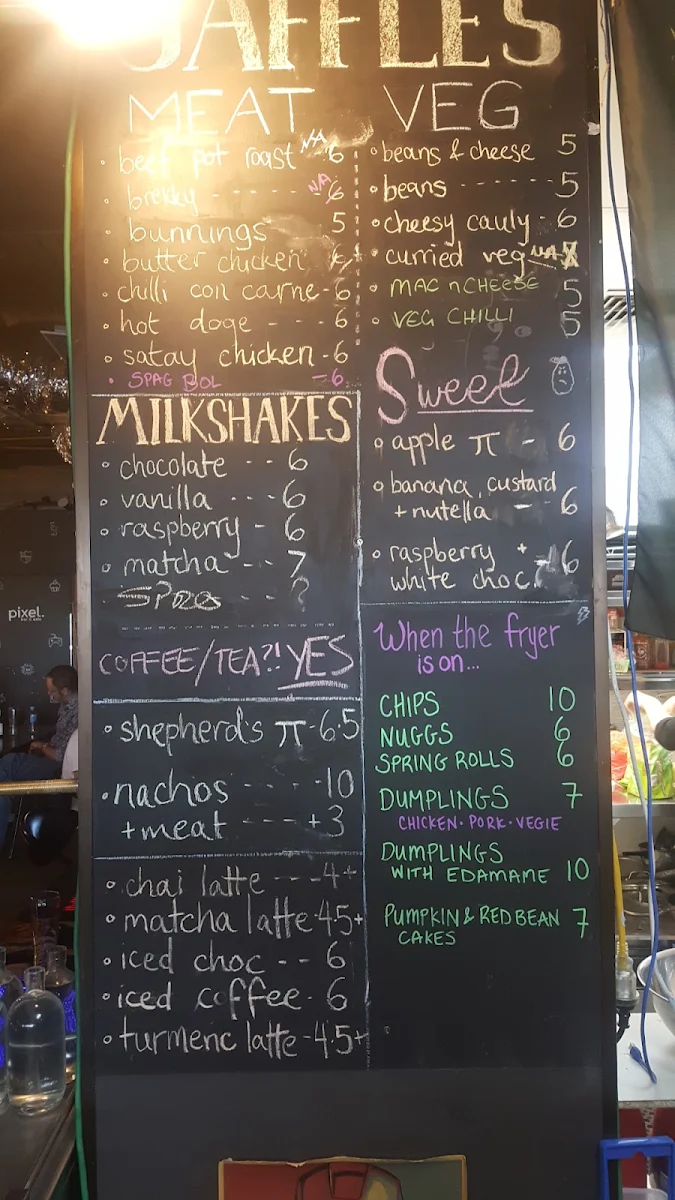 JAFFLES
MEAT
• beef pot roast NA 6
• brekky - - - - - - NA 6
• bunnings 5
• butter chicken 6
• chilli con carne - 6
• hot doge - - - 6
• satay chicken - 6
• SPAG BOL - 6
VEG
• beans & cheese 5
• beans - - - - - - 5
• cheesy cauly - 6
• curried veg NA
• MAC n CHEESE 5
• VEG CHILLI 5
Sweet
• apple π - 6
• banana, custard
+ nutella - 6
• raspberry +
white choc 6
MILKSHAKES
• chocolate - - 6
• vanilla - - - 6
• raspberry - 6
• matcha - - 7
- - ?
COFFEE/TEA?! YES
• shepherd's π - 6.5
• nachos - - - - 10
+ meat - - - + 3
• chai latte - - - 4+
• matcha latte 4.5+
• iced choc - - 6
• iced coffee - 6
• turmeric latte - 4.5+
When the fryer
is on...
CHIPS 10
NUGGS 6
SPRING ROLLS 6
DUMPLINGS 7
CHICKEN · PORK · VEGIE
DUMPLINGS
WITH EDAMAME 10
PUMPKIN & RED BEAN 7
CAKES
pixel.